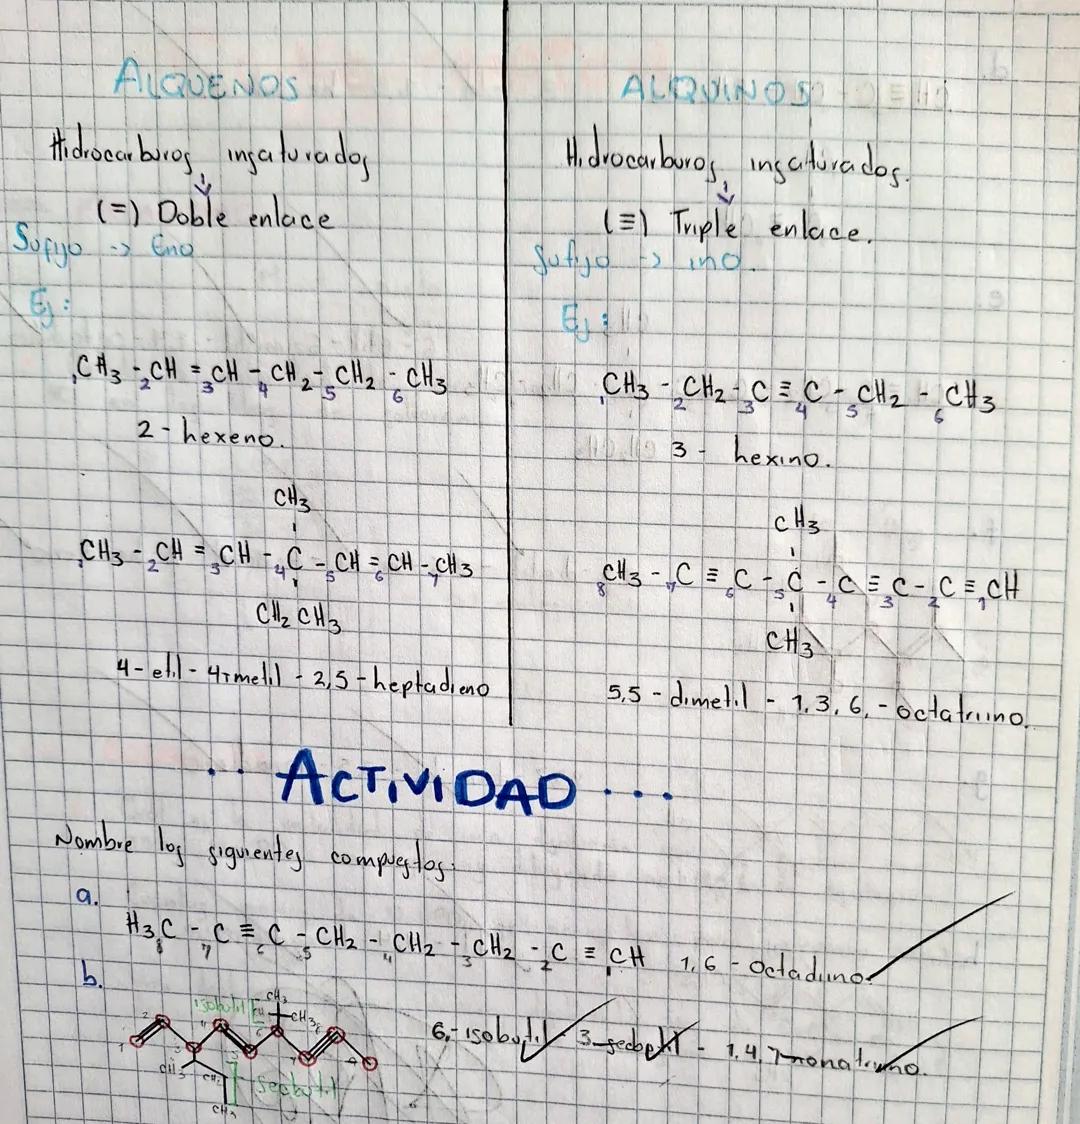 ALQUENOS
Hidrocarburos insaturados
(=) Doble enlace
Sufijo -> Eno
Ej:
1CH3 - 2CH = 3CH - 4CH2 - 5CH2 - 6CH3
2 - hexeno.
CH3
1CH3 - 2CH = 3CH - 4C - 5CH = 6CH - 7CH3
CH2 CH3
4 - etil - 4 - metil - 2,5 - heptadieno
ALQUINOS
Hidrocarburos insaturados.
(≡) Triple enlace.
Sufijo -> ino.
Ej:
1CH3 - 2CH2 - 3C ≡ 4C - 5CH2 - 6CH3
3 - hexino.
CH3
8CH3 - 7C ≡ 6C - 5C - 4C ≡ 3C - 2C ≡ 1CH
CH3
5,5 - dimetil - 1,3,6, - octatriino.
.. ACTIVIDAD ...
Nombre los siguientes compuestos:
a.
H3C - C ≡ C - CH2 - CH2 - CH2 - C ≡ CH 1,6 - Octadiino.
8 7 6 5 4 3 2 1
b.
isobutil
CH3
CH3
6,-isobutil - 3-secbutil - 1,4,7-nonatriino.
CH3
CH2
secbutil
CH3